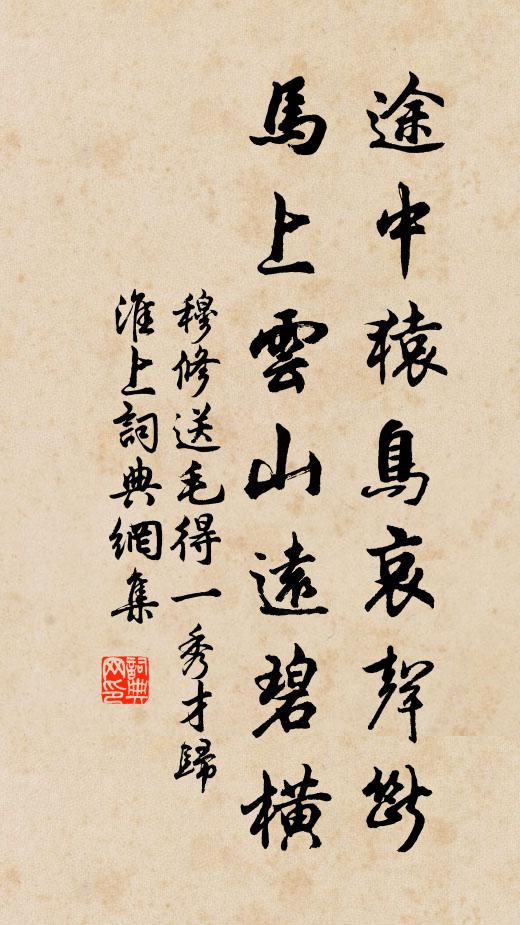 途中猿鳥哀聲斷
馬上雲山遠碧橫
穆修送毛得一秀才歸
淮上詞典網集
詞典网印